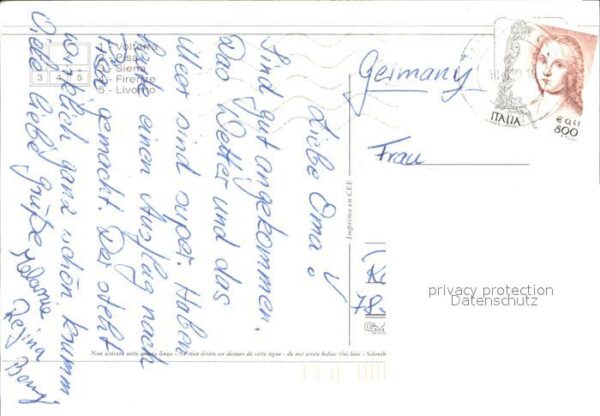 Liebe Oma!
Sind gut angekommen.
Das Wetter und das
Meer sind super. Haben
heute einen Ausflug nach
Pisa gemacht. Der steht
wirklich ganz schön krumm
Viele liebe Grüße
Melanie
Regina
Germany
Frau
78
ITALIA
€ 0,41
800
- Volterra
- Pisa
- Siena
- Firenze
5 - Livorno
3 4 5
Imprimé en C.E.E.
privacy protection
Datenschutz
Non scrivere sotto questa linea - Ne rien écrire au dessous de cette ligne - do not write below this line - Schreib